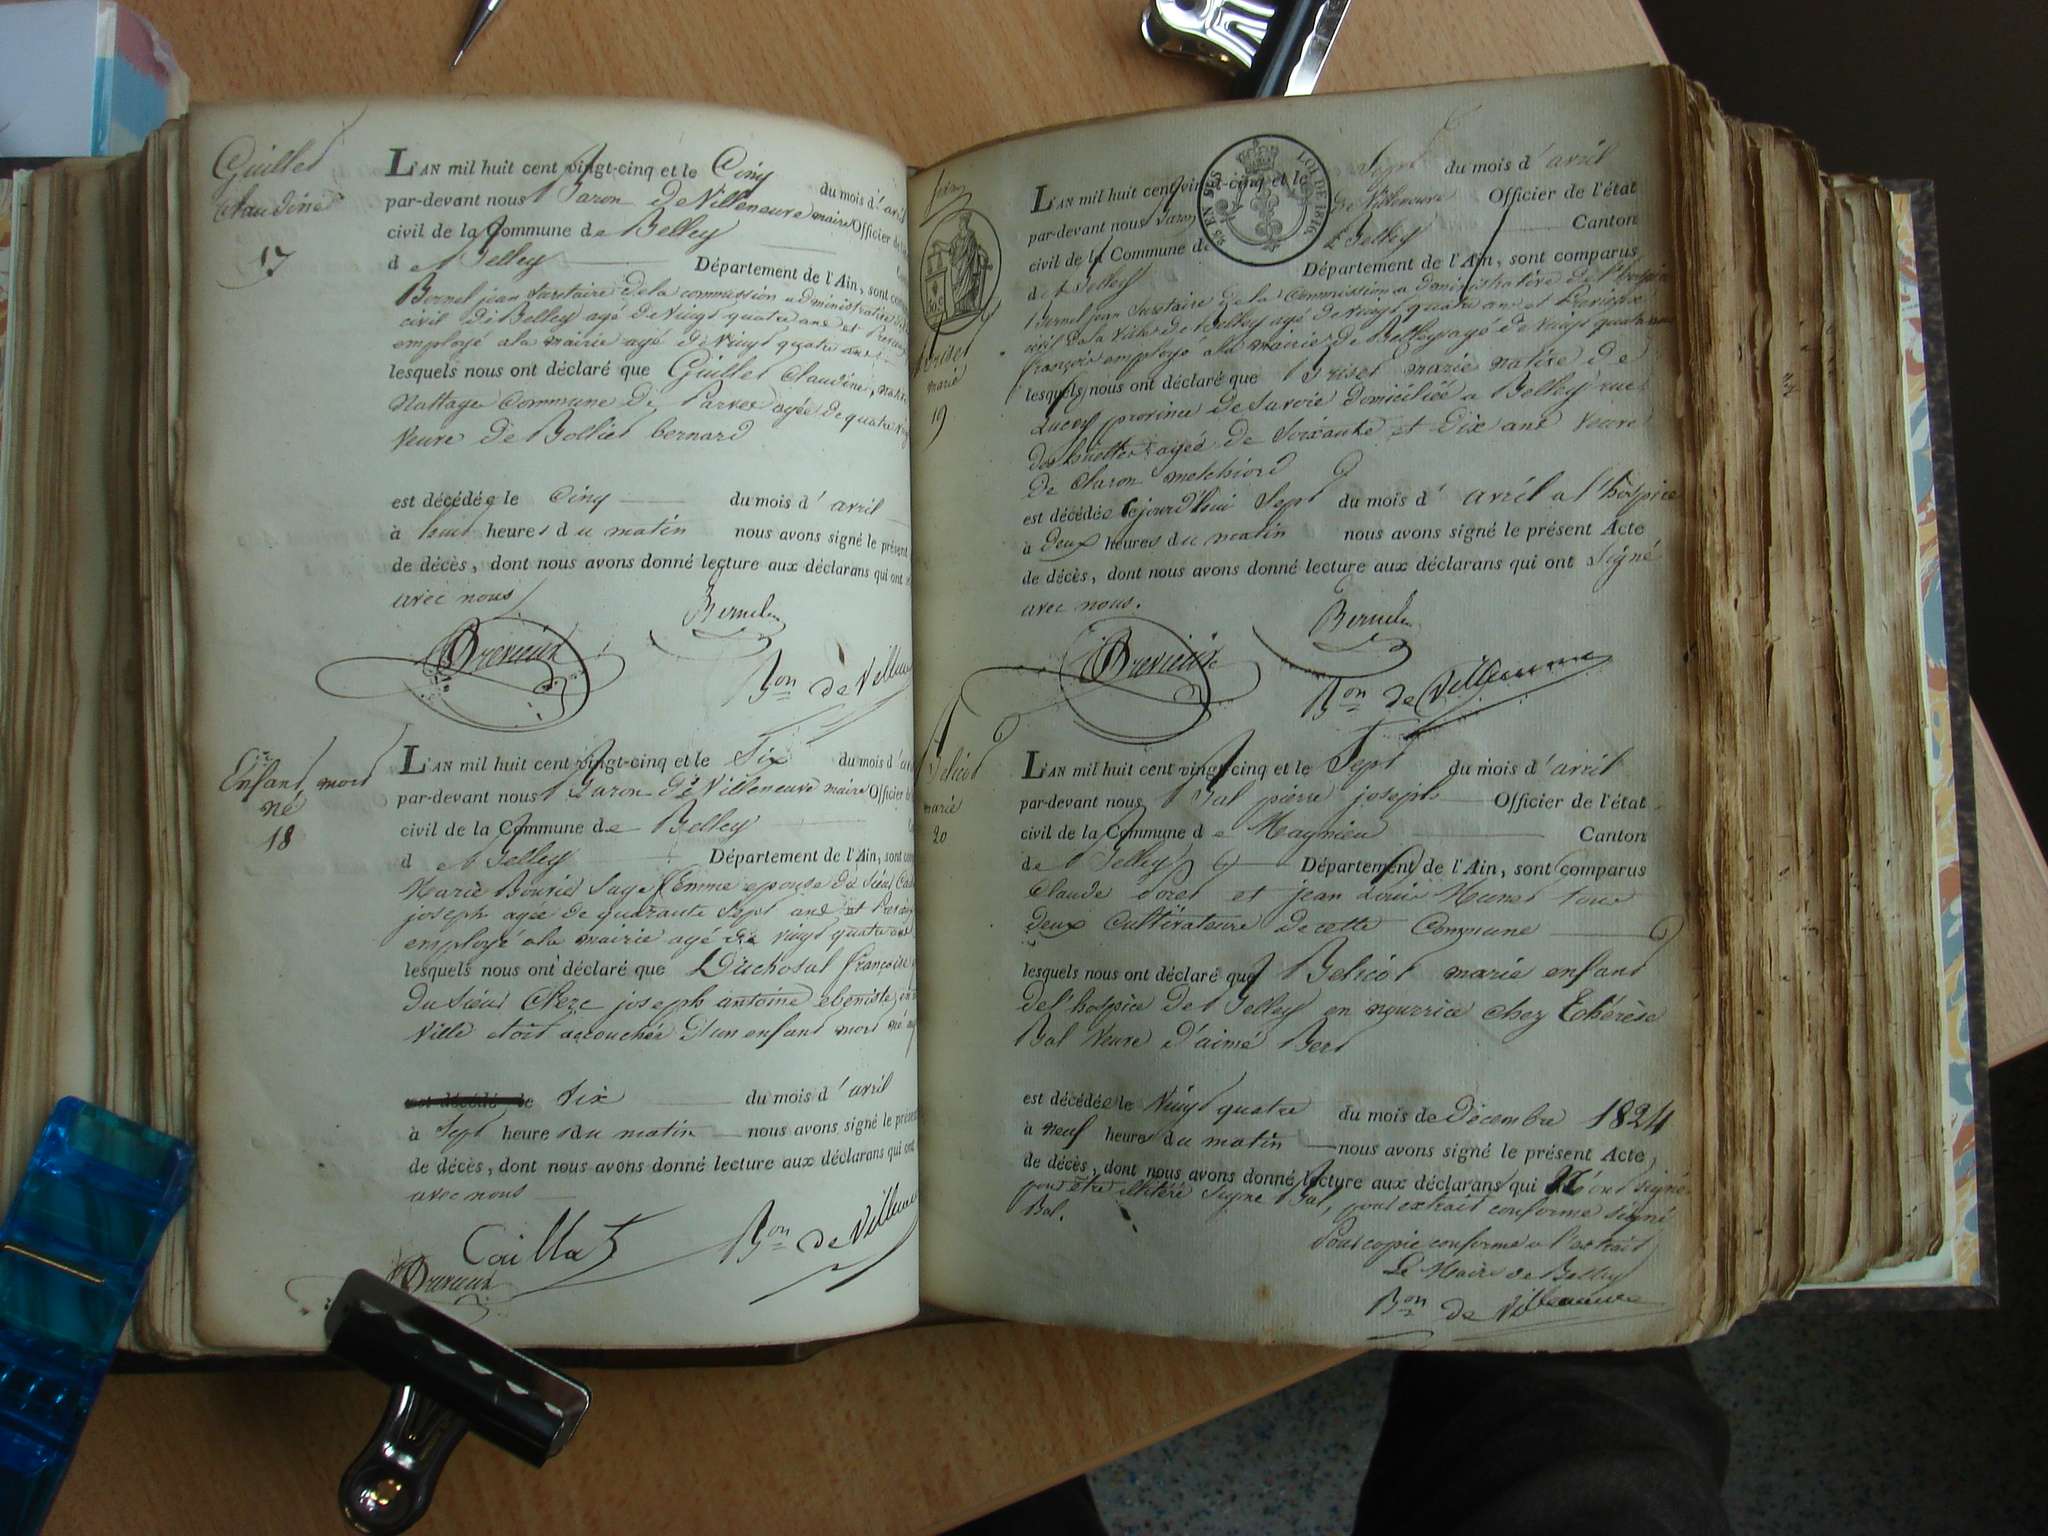 Guillet
Claudine
17
L'AN mil huit cent vingt-cinq et le Cinq du mois d'avril
par-devant nous Baron de Villeneuve maire Officier de
civil de la Commune de Belley
de Belley Département de l'Ain, sont
Bernel jean Secretaire de la commission administrative
civil de Belley agé de Vingt quatre ans et
employé a la mairie agé de Vingt quatre ans
lesquels nous ont déclaré que Guillet Claudine, native
Nattage Commune de Parves agée de quatre
Veuve de Bollier bernard
est décédée le Cinq du mois d'avril
à huit heures du matin nous avons signé le présent
de décès, dont nous avons donné lecture aux déclarans qui ont
avec nous
Drevieux
Bernel
Bon de Villeneuve
Enfant mort
né
18
L'AN mil huit cent vingt-cinq et le Six du mois d'avril
par-devant nous Baron de Villeneuve maire Officier de
civil de la Commune de Belley
de Belley Département de l'Ain, sont
Marie Bouvier Sage femme epouse du Sieur
joseph agée de quarante Sept ans et
employé a la mairie agé de Vingt quatre ans
lesquels nous ont déclaré que Duchosal françoise
du Sieur Clerc joseph antoine ebeniste en
Ville etoit accouchée d'un enfant mort né
est décédé le Six du mois d'avril
à Sept heures du matin nous avons signé le présent
de décès, dont nous avons donné lecture aux déclarans qui ont
avec nous
Caillat
Drevieux
Bon de Villeneuve
25 CEN LOI DE 1816
marie
19
L'AN mil huit cent vingt-cinq et le Sept du mois d'avril
par-devant nous Baron de Villeneuve Officier de l'état
civil de la Commune de Belley Canton
de Belley Département de l'Ain, sont comparus
Bernel jean Secretaire de la Commission administrative de l'hospice
civil de la Ville de Belley agé de Vingt quatre ans et Drevieux
françois employé a la mairie de Belley agé de Vingt quatre ans
lesquels nous ont déclaré que Briset marie native de
Lucey province de Savoie domiciliée a Belley rue
agée de Soixante et Dix ans Veuve
de Claron melchior
est décédée cejourd'hui Sept du mois d'avril a l'hospice
à deux heures du matin nous avons signé le présent Acte
de décès, dont nous avons donné lecture aux déclarans qui ont Signé
avec nous.
Drevieux
Bernel
Bon de Villeneuve
Belicot
marie
20
L'AN mil huit cent vingt-cinq et le Sept du mois d'avril
par-devant nous Bal pierre joseph Officier de l'état
civil de la Commune de Magnieu Canton
de Belley Département de l'Ain, sont comparus
Claude et jean Louis tous
deux Cultivateurs de cette Commune
lesquels nous ont déclaré que Belicot marie enfant
de l'hospice de Belley en nourrice chez Thérèse
Bal Veuve d'aimé Bert
est décédée le Vingt quatre du mois de Décembre 1824
à neuf heures du matin nous avons signé le présent Acte,
de décès, dont nous avons donné lecture aux déclarans qui N'ont signé
pour être illitéré Signé Bal, pour extrait conforme signé
Bal.
Pour copie conforme a l'extrait
Le Maire de Belley
Bon de Villeneuve